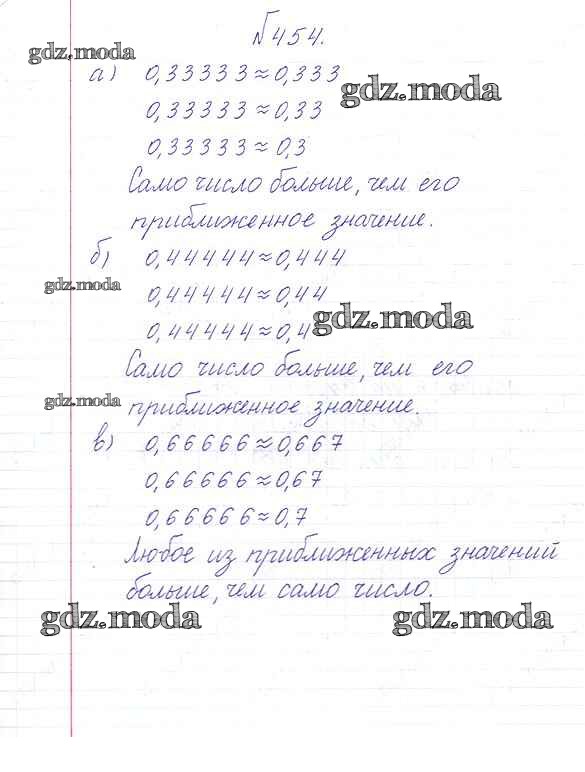 №454.
gdz.moda
а) 0,33333≈0,333
gdz.moda
0,33333≈0,33
0,33333≈0,3
Само число больше, чем его
приближенное значение.
б) 0,44444≈0,444
gdz.moda
0,44444≈0,44
0,44444≈0,4
gdz.moda
Само число больше, чем его
gdz.moda
приближенное значение.
в) 0,66666≈0,667
0,66666≈0,67
0,66666≈0,7
Любое из приближенных значений
больше, чем само число.
gdz.moda
gdz.moda